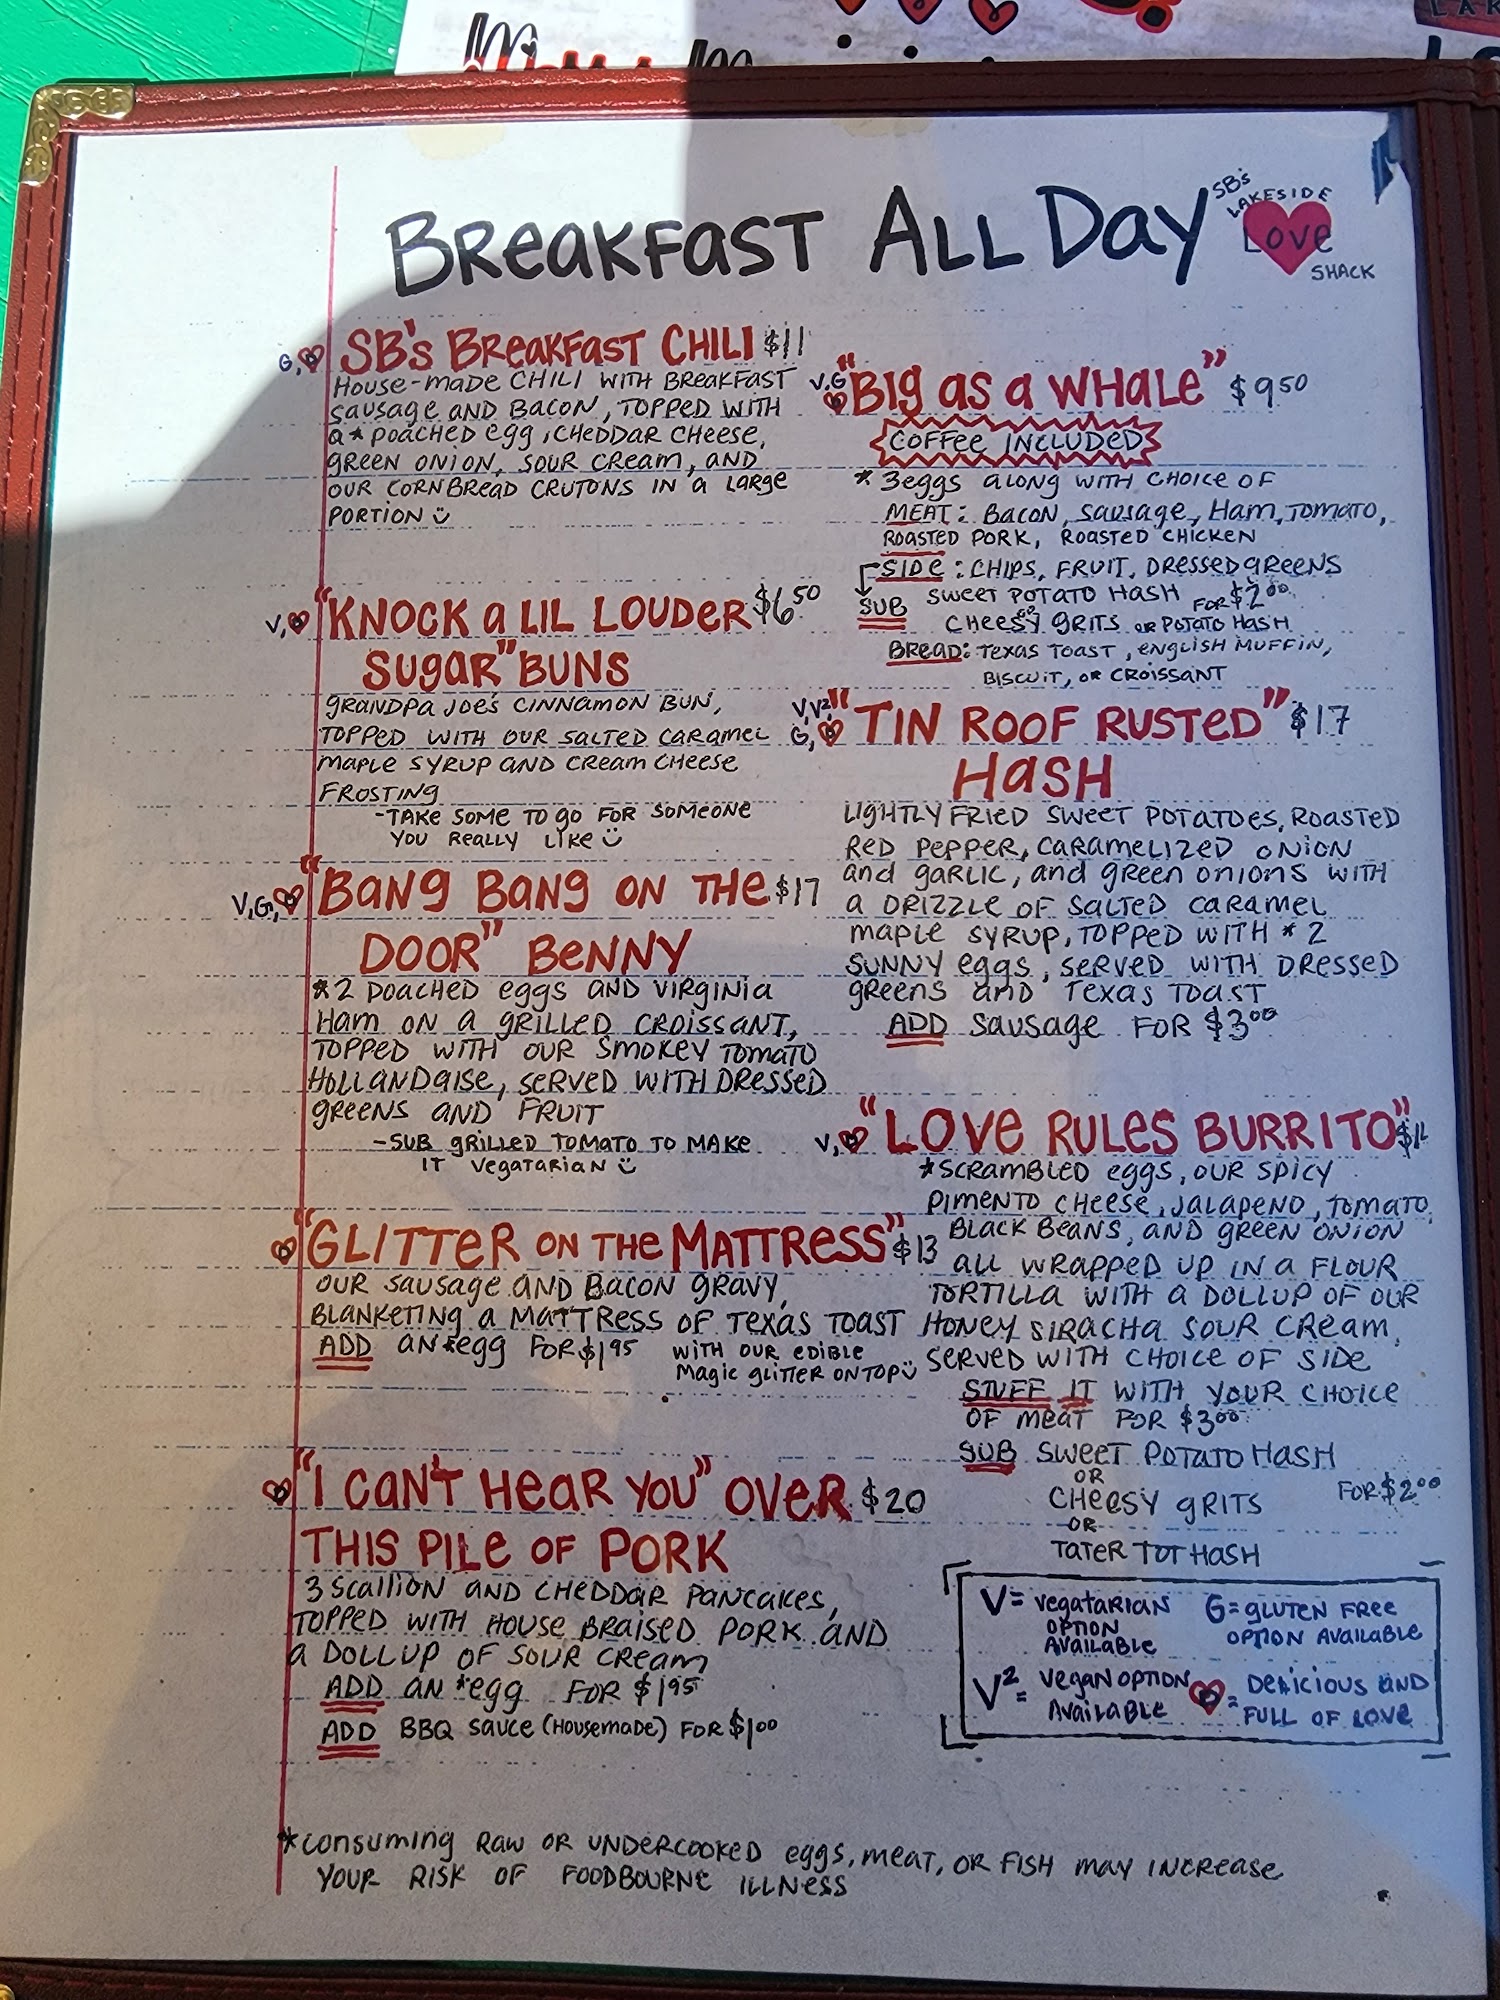 BREAKFAST ALL DAY
SB's
LAKESIDE
LOVE
SHACK
G, SB's BREAKFAST CHILI $11
HOUSE-MADE CHILI WITH BREAKFAST
SAUSAGE AND BACON, TOPPED WITH
a * POACHED egg, CHEDDAR CHEESE,
GREEN ONION, SOUR CREAM, AND
OUR CORNBREAD CRUTONS IN a LARGE
PORTION
V, "KNOCK a LIL LOUDER $6.50
SUGAR" BUNS
GRANDPA JOE'S CINNAMON BUN,
TOPPED WITH OUR SALTED CARAMEL
MAPLE SYRUP AND CREAM CHEESE
FROSTING
-TAKE SOME TO GO FOR SOMEONE
YOU REALLY LIKE
V, G, "BANG BANG ON THE $17
DOOR" BENNY
*2 POACHED eggs AND VIRGINIA
HAM ON A GRILLED CROISSANT,
TOPPED WITH OUR SMOKEY TOMATO
HOLLANDAISE, SERVED WITH DRESSED
GREENS AND FRUIT
-SUB GRILLED TOMATO TO MAKE
IT VEGATARIAN
"GLITTER ON THE MATTRESS" $13
OUR SAUSAGE AND BACON GRAVY,
BLANKETING A MATTRESS OF TEXAS TOAST
ADD AN *egg FOR $1.95
WITH OUR EDIBLE
MAGIC GLITTER ON TOP
"I CAN'T HEAR YOU" OVER $20
THIS PILE OF PORK
3 SCALLION AND CHEDDAR PANCAKES,
TOPPED WITH HOUSE BRAISED PORK AND
a DOLLUP OF SOUR CREAM
ADD AN *egg FOR $1.95
ADD BBQ SAUCE (HOUSEMADE) FOR $1.00
V, G "BIG as a WHALE" $9.50
COFFEE INCLUDED
* 3 eggs ALONG WITH CHOICE OF
MEAT: BACON, SAUSAGE, HAM, TOMATO,
ROASTED PORK, ROASTED CHICKEN
SIDE: CHIPS, FRUIT, DRESSED GREENS
SUB SWEET POTATO HASH FOR $2.00
OR
CHEESY GRITS OR POTATO HASH
BREAD: TEXAS TOAST, ENGLISH MUFFIN,
BISCUIT, OR CROISSANT
V, V², G, "TIN ROOF RUSTED" $17
HASH
LIGHTLY FRIED SWEET POTATOES, ROASTED
RED PEPPER, CARAMELIZED ONION
AND GARLIC, AND GREEN ONIONS WITH
a DRIZZLE OF SALTED CARAMEL
MAPLE SYRUP, TOPPED WITH * 2
SUNNY eggs, SERVED WITH DRESSED
GREENS AND TEXAS TOAST
ADD SAUSAGE FOR $3.00
V, "LOVE RULES BURRITO"
*SCRAMBLED eggs, OUR SPICY
PIMENTO CHEESE, JALAPENO, TOMATO,
BLACK BEANS, AND GREEN ONION
ALL WRAPPED UP IN A FLOUR
TORTILLA WITH A DOLLUP OF OUR
HONEY SIRACHA SOUR CREAM,
SERVED WITH CHOICE OF SIDE
STUFF IT WITH YOUR CHOICE
OF MEAT FOR $3.00
SUB SWEET POTATO HASH
OR
CHEESY GRITS FOR $2.00
OR
TATER TOT HASH
V= VEGATARIAN OPTION AVAILABLE
G= GLUTEN FREE OPTION AVAILABLE
V²= VEGAN OPTION AVAILABLE
= DELICIOUS AND FULL OF LOVE
*CONSUMING RAW OR UNDERCOOKED eggs, MEAT, OR FISH MAY INCREASE
YOUR RISK OF FOODBOURNE ILLNESS